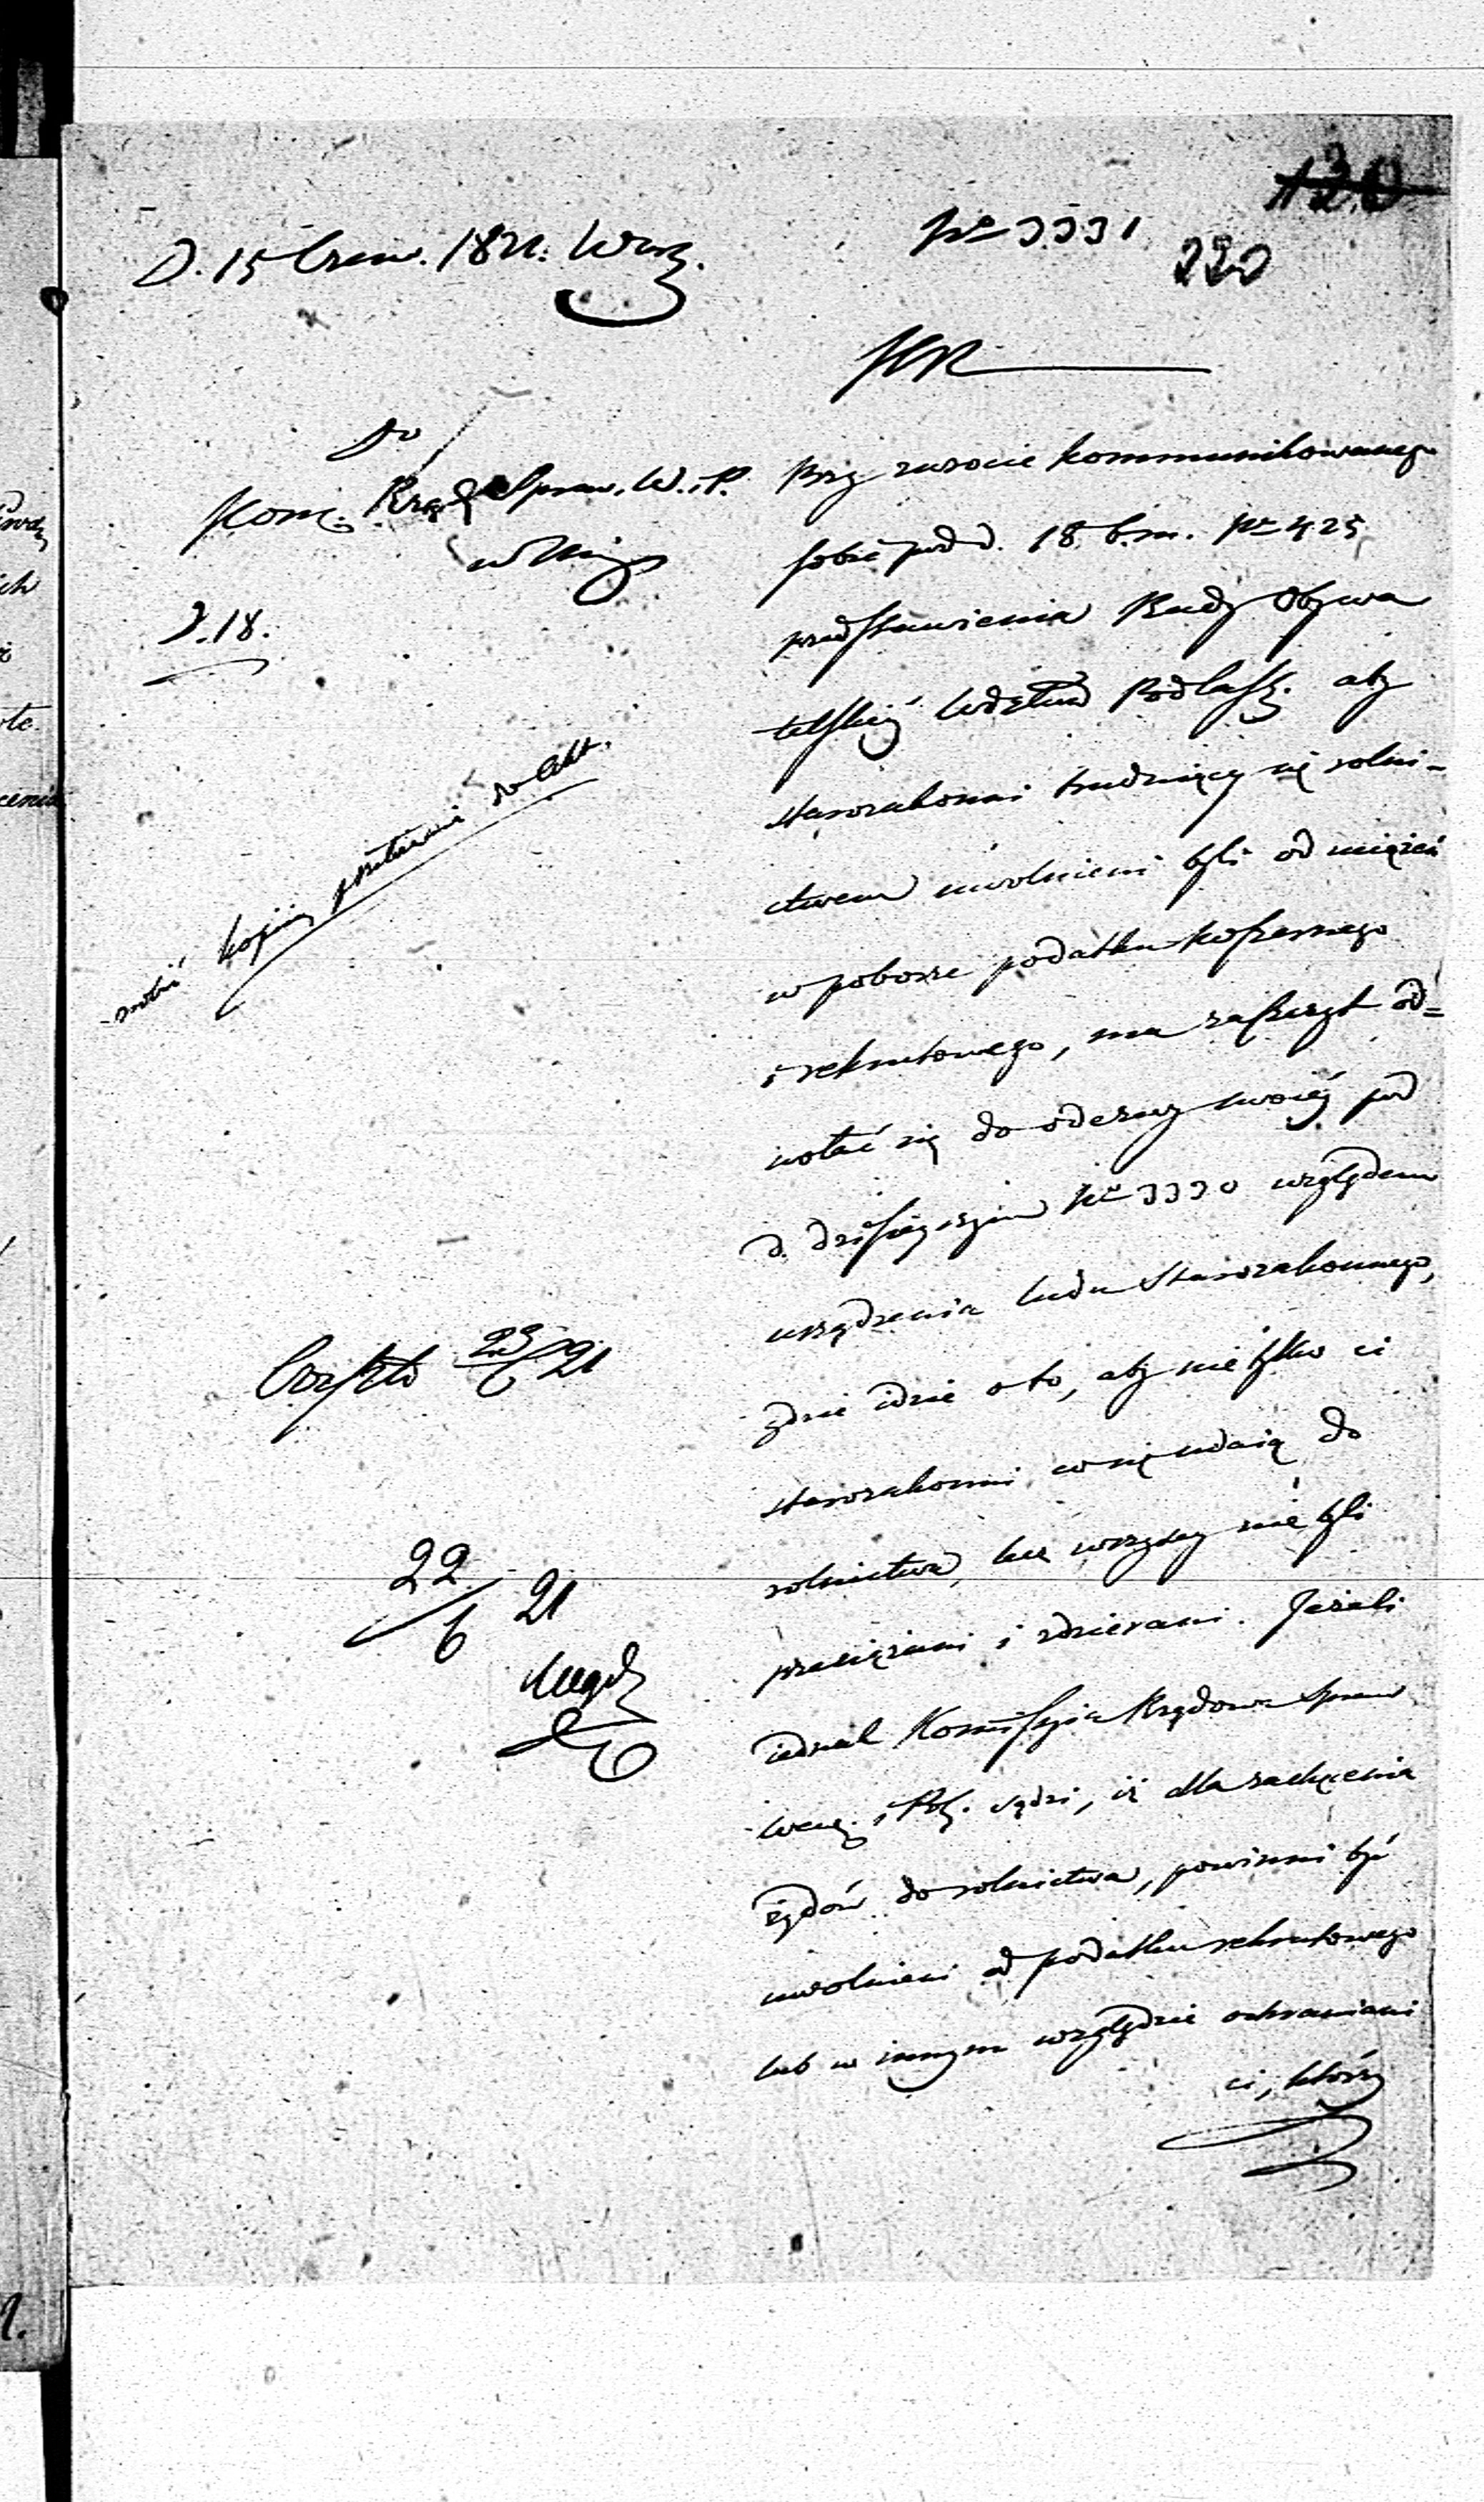 120
D. 15 Czerw. 1821. Warsz.
No 3331
220
KR
Do
Kom. Rząd. Spraw. W. i P.
w Miejscu
D. 18.
zrobić kopiię do Akt.
Czysto 23/6 21
22/6 21
Przy zwrocie kommunikowanego
sobie pod d. 18 b. m. No 425
przedstawienia Rady Obywa
telskiéj Wdztwa Podlask. aby
starozakonni trudniący się rolni-
ctwem uwolnieni byli od uciążeń
w poborze podatku koszernego
i rekrutowego, ma zaszczyt od=
wołać się do odezwy swoiéj pod
d. dzisieyszym No 3330 względem
urządzenia ludu Starozakonnego,
gdzie idzie o to, aby nietylko ci
starozakonni co się udaią do
rolnictwa, lecz wszyscy nie byli
przeciążani i zdzierani. Jeżeli
iednak Kommissyia Rządowa Spraw
Wew. i Pol. sądzi, iż dla zachęcenia
żydów do rolnictwa, powinni być
uwolnieni od podatku rekrutowego
lub w innym względzie ochraniani
ci, którzy